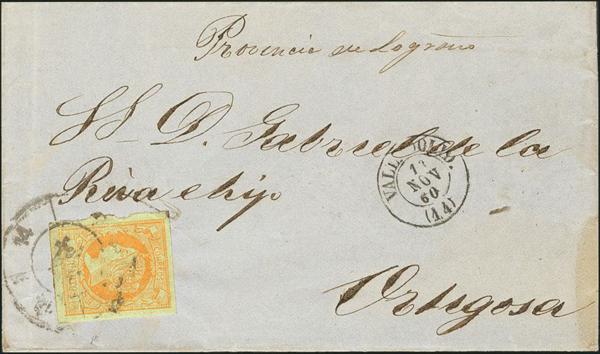 Provincia de Logroño
SS D. Gabriel de la
Riva e hijo
VALLADOLID
NOV
60
(14)
Ortigosa